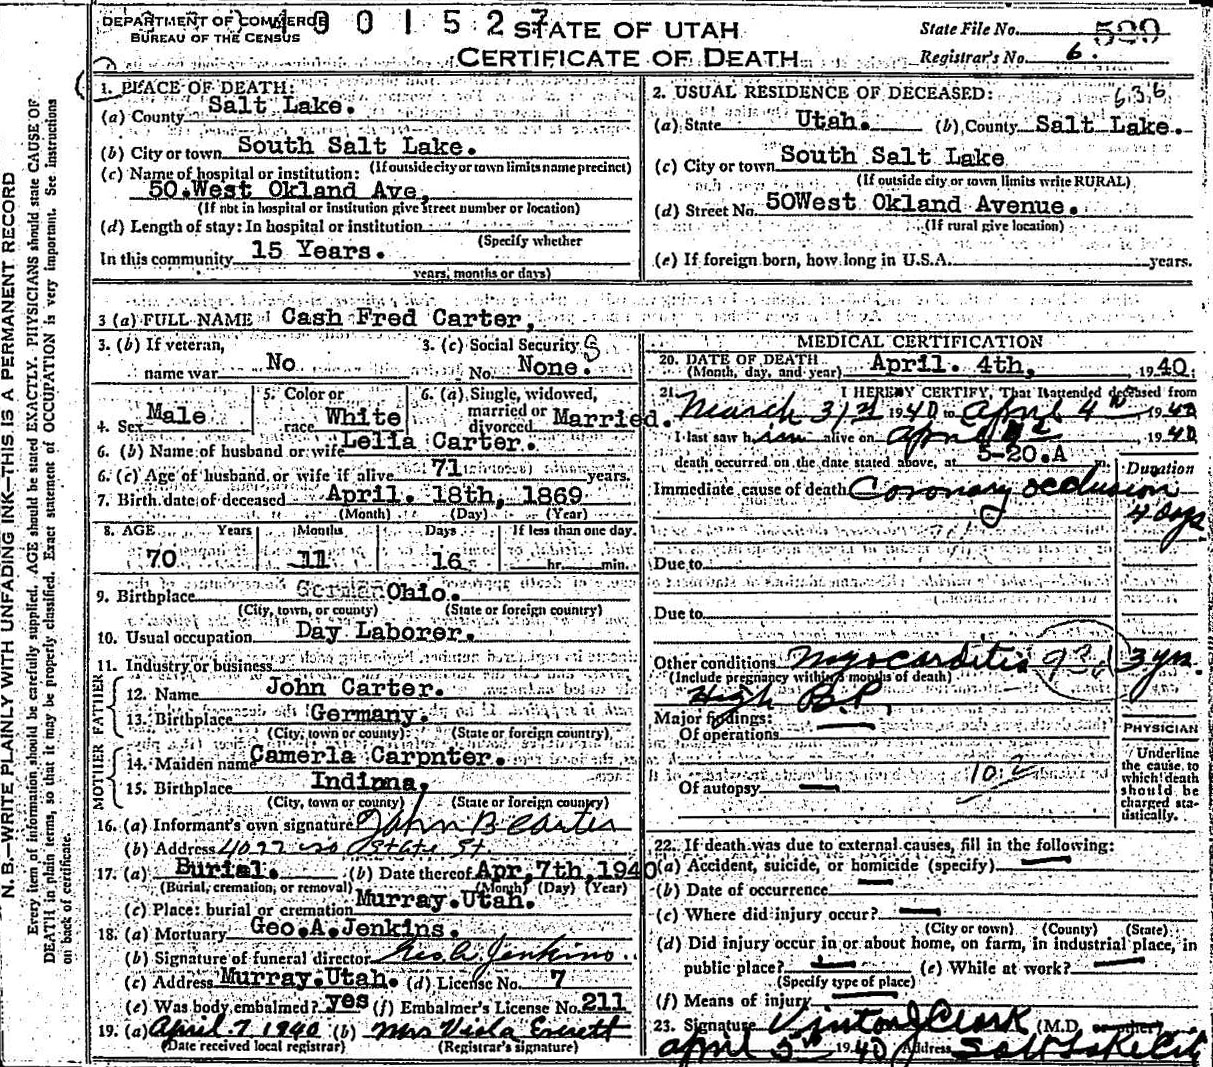 DEPARTMENT OF COMMERCE
BUREAU OF THE CENSUS
4 0 0 1 5 2 7
STATE OF UTAH
CERTIFICATE OF DEATH
State File No. 599
Registrar's No. 6.
1. PLACE OF DEATH:
(a) County Salt Lake.
(b) City or town South Salt Lake.
(If outside city or town limits name precinct)
(c) Name of hospital or institution:
50.West Okland Ave,
(If not in hospital or institution give street number or location)
(d) Length of stay: In hospital or institution
(Specify whether
In this community 15 Years.
years, months or days)
2. USUAL RESIDENCE OF DECEASED: 636
(a) State Utah. (b) County Salt Lake.
(c) City or town South Salt Lake
(If outside city or town limits write RURAL)
(d) Street No. 50West Okland Avenue.
(If rural give location)
(e) If foreign born, how long in U.S.A. years.
3 (a) FULL NAME Cash Fred Carter,
3. (b) If veteran,
name war No
3. (c) Social Security
No. None.
4. Sex Male
5. Color or
race White
6. (a) Single, widowed,
married or
divorced Married.
6. (b) Name of husband or wife Lelia Carter.
6. (c) Age of husband or wife if alive 71 years.
7. Birth date of deceased April. 18th, 1869
(Month) (Day) (Year)
8. AGE Years Months Days If less than one day
70 11 16 hr. min.
9. Birthplace German Ohio.
(City, town, or county) (State or foreign country)
10. Usual occupation Day Laborer.
11. Industry or business
FATHER
12. Name John Carter.
13. Birthplace Germany.
(City, town or county) (State or foreign country)
MOTHER
14. Maiden name Camerla Carpnter.
15. Birthplace Indinna,
(City, town or county) (State or foreign country)
16. (a) Informant's own signature John B Carter
(b) Address 4077 so State St
17. (a) Burial. (b) Date thereof Apr,7th,1940
(Burial, cremation, or removal) (Month) (Day) (Year)
(c) Place: burial or cremation Murray.Utah.
18. (a) Mortuary Geo.A.Jenkins.
(b) Signature of funeral director Geo. A. Jenkins.
(c) Address Murray.Utah. (d) License No. 7
(e) Was body embalmed? yes (f) Embalmer's License No. 211
19. (a) April 7 1940 (b) Mrs Viola Everett
(Date received local registrar) (Registrar's signature)
MEDICAL CERTIFICATION
20. DATE OF DEATH
(Month, day, and year) April. 4th, 1940.
21. I HEREBY CERTIFY, That I attended deceased from
March 31st 1940 to April 4th 1940
I last saw him alive on April 1940
death occurred on the date stated above, at 5-20.A m.
Duration
Immediate cause of death Coronary occlusion
4 days
Due to
Due to
Other conditions Myocarditis 93d 3 yrs.
(Include pregnancy within 3 months of death)
High B.P.
Major findings:
Of operations
102
Of autopsy
PHYSICIAN
Underline
the cause to
which death
should be
charged sta-
tistically.
22. If death was due to external causes, fill in the following:
(a) Accident, suicide, or homicide (specify)
(b) Date of occurrence
(c) Where did injury occur?
(City or town) (County) (State)
(d) Did injury occur in or about home, on farm, in industrial place, in
public place? (e) While at work?
(Specify type of place)
(f) Means of injury
23. Signature Vinton J Clark (M.D. or other)
April 5th 1940 Address Salt Lake City
N. B.—WRITE PLAINLY WITH UNFADING INK—THIS IS A PERMANENT RECORD
Every item of information should be carefully supplied. AGE should be stated EXACTLY. PHYSICIANS should state CAUSE OF
DEATH in plain terms, so that it may be properly classified. Exact statement of OCCUPATION is very important. See instructions
on back of certificate.